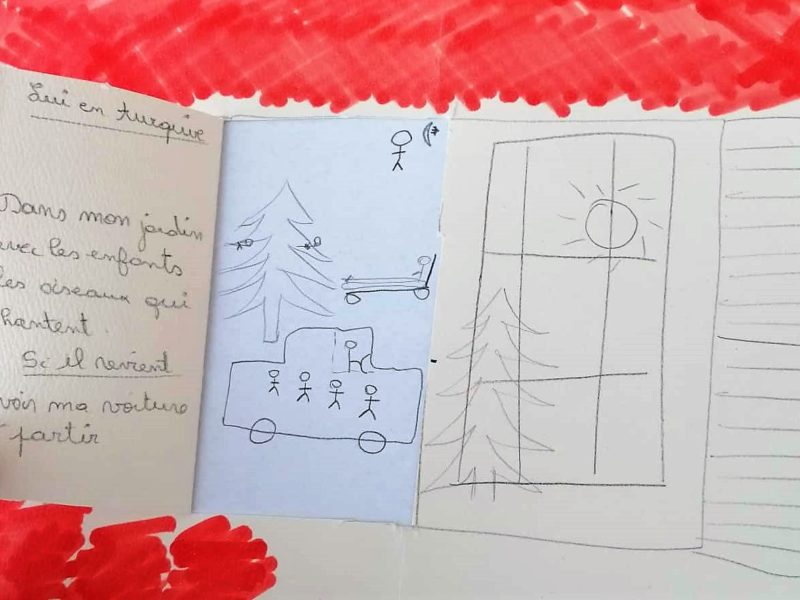 Lui en turquie
Dans mon jardin
avec les enfants
les oiseaux qui
chantent.
Si il revient
voir ma voiture
partir